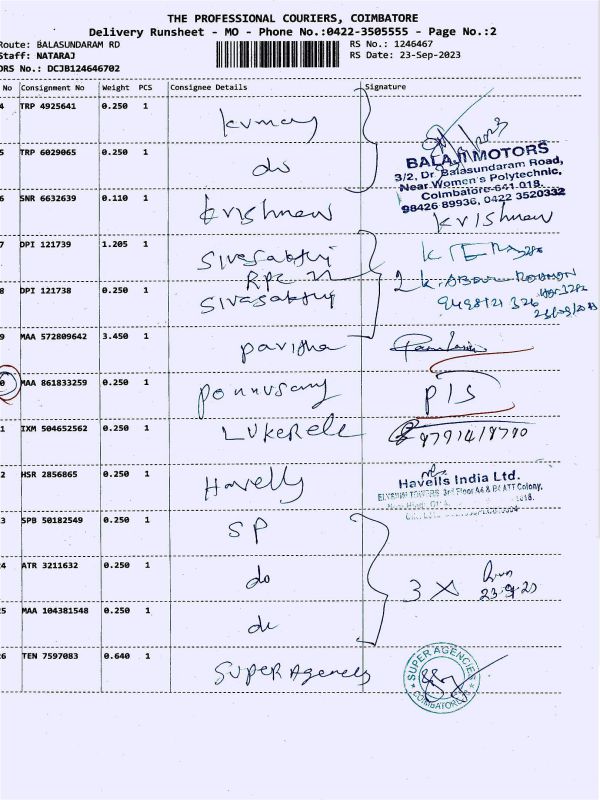 THE PROFESSIONAL COURIERS, COIMBATORE
Delivery Runsheet - MO - Phone No.:0422-3505555 - Page No.:2
Route: BALASUNDARAM RD RS No.: 1246467
Staff: NATARAJ RS Date: 23-Sep-2023
DRS No.: DCJB124646702
No Consignment No Weight PCS Consignee Details Signature
4 TRP 4925641 0.250 1 kumar
5 TRP 6029065 0.250 1 do
BALAJI MOTORS
3/2, Dr. Balasundaram Road,
Near Women's Polytechnic,
Coimbatore-641 018.
98426 89936, 0422 3520332
6 SNR 6632639 0.110 1 krishnan krishnan
7 DPI 121739 1.205 1 Sivasakthi
8 DPI 121738 0.250 1 Sivasakthi
9 MAA 572809642 3.450 1 pavithra
0 MAA 861833259 0.250 1 ponnusamy P/S
1 IXM 504652562 0.250 1
2 HSR 2856865 0.250 1 Havells
Havells India Ltd.
ELYSIUM TOWERS 3rd Floor A4 & B4 ATT Colony,
3 SPB 50182549 0.250 1 SP
4 ATR 3211632 0.250 1 do 3 X 23-9-23
5 MAA 104381548 0.250 1 do
6 TEN 7597083 0.640 1 SUPER Agencies
SUPER AGENCIES
COIMBATORE